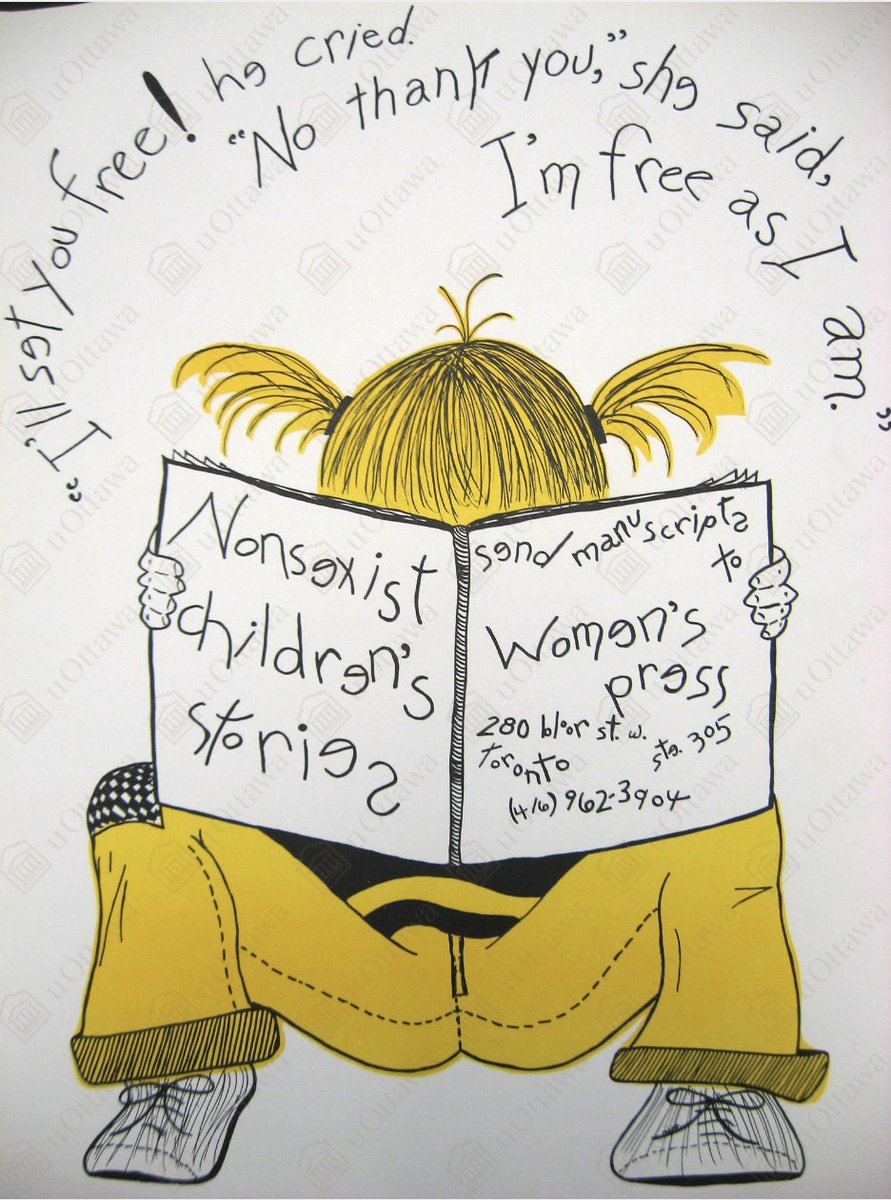 "I'll set you free! he cried.
"No thank you," she said,
I'm free as I am."
Nonsexist
children's
stories
send manuscripts
to
Women's
press
280 bloor st. w.
ste. 305
toronto
(416) 962-3904
uOttawa